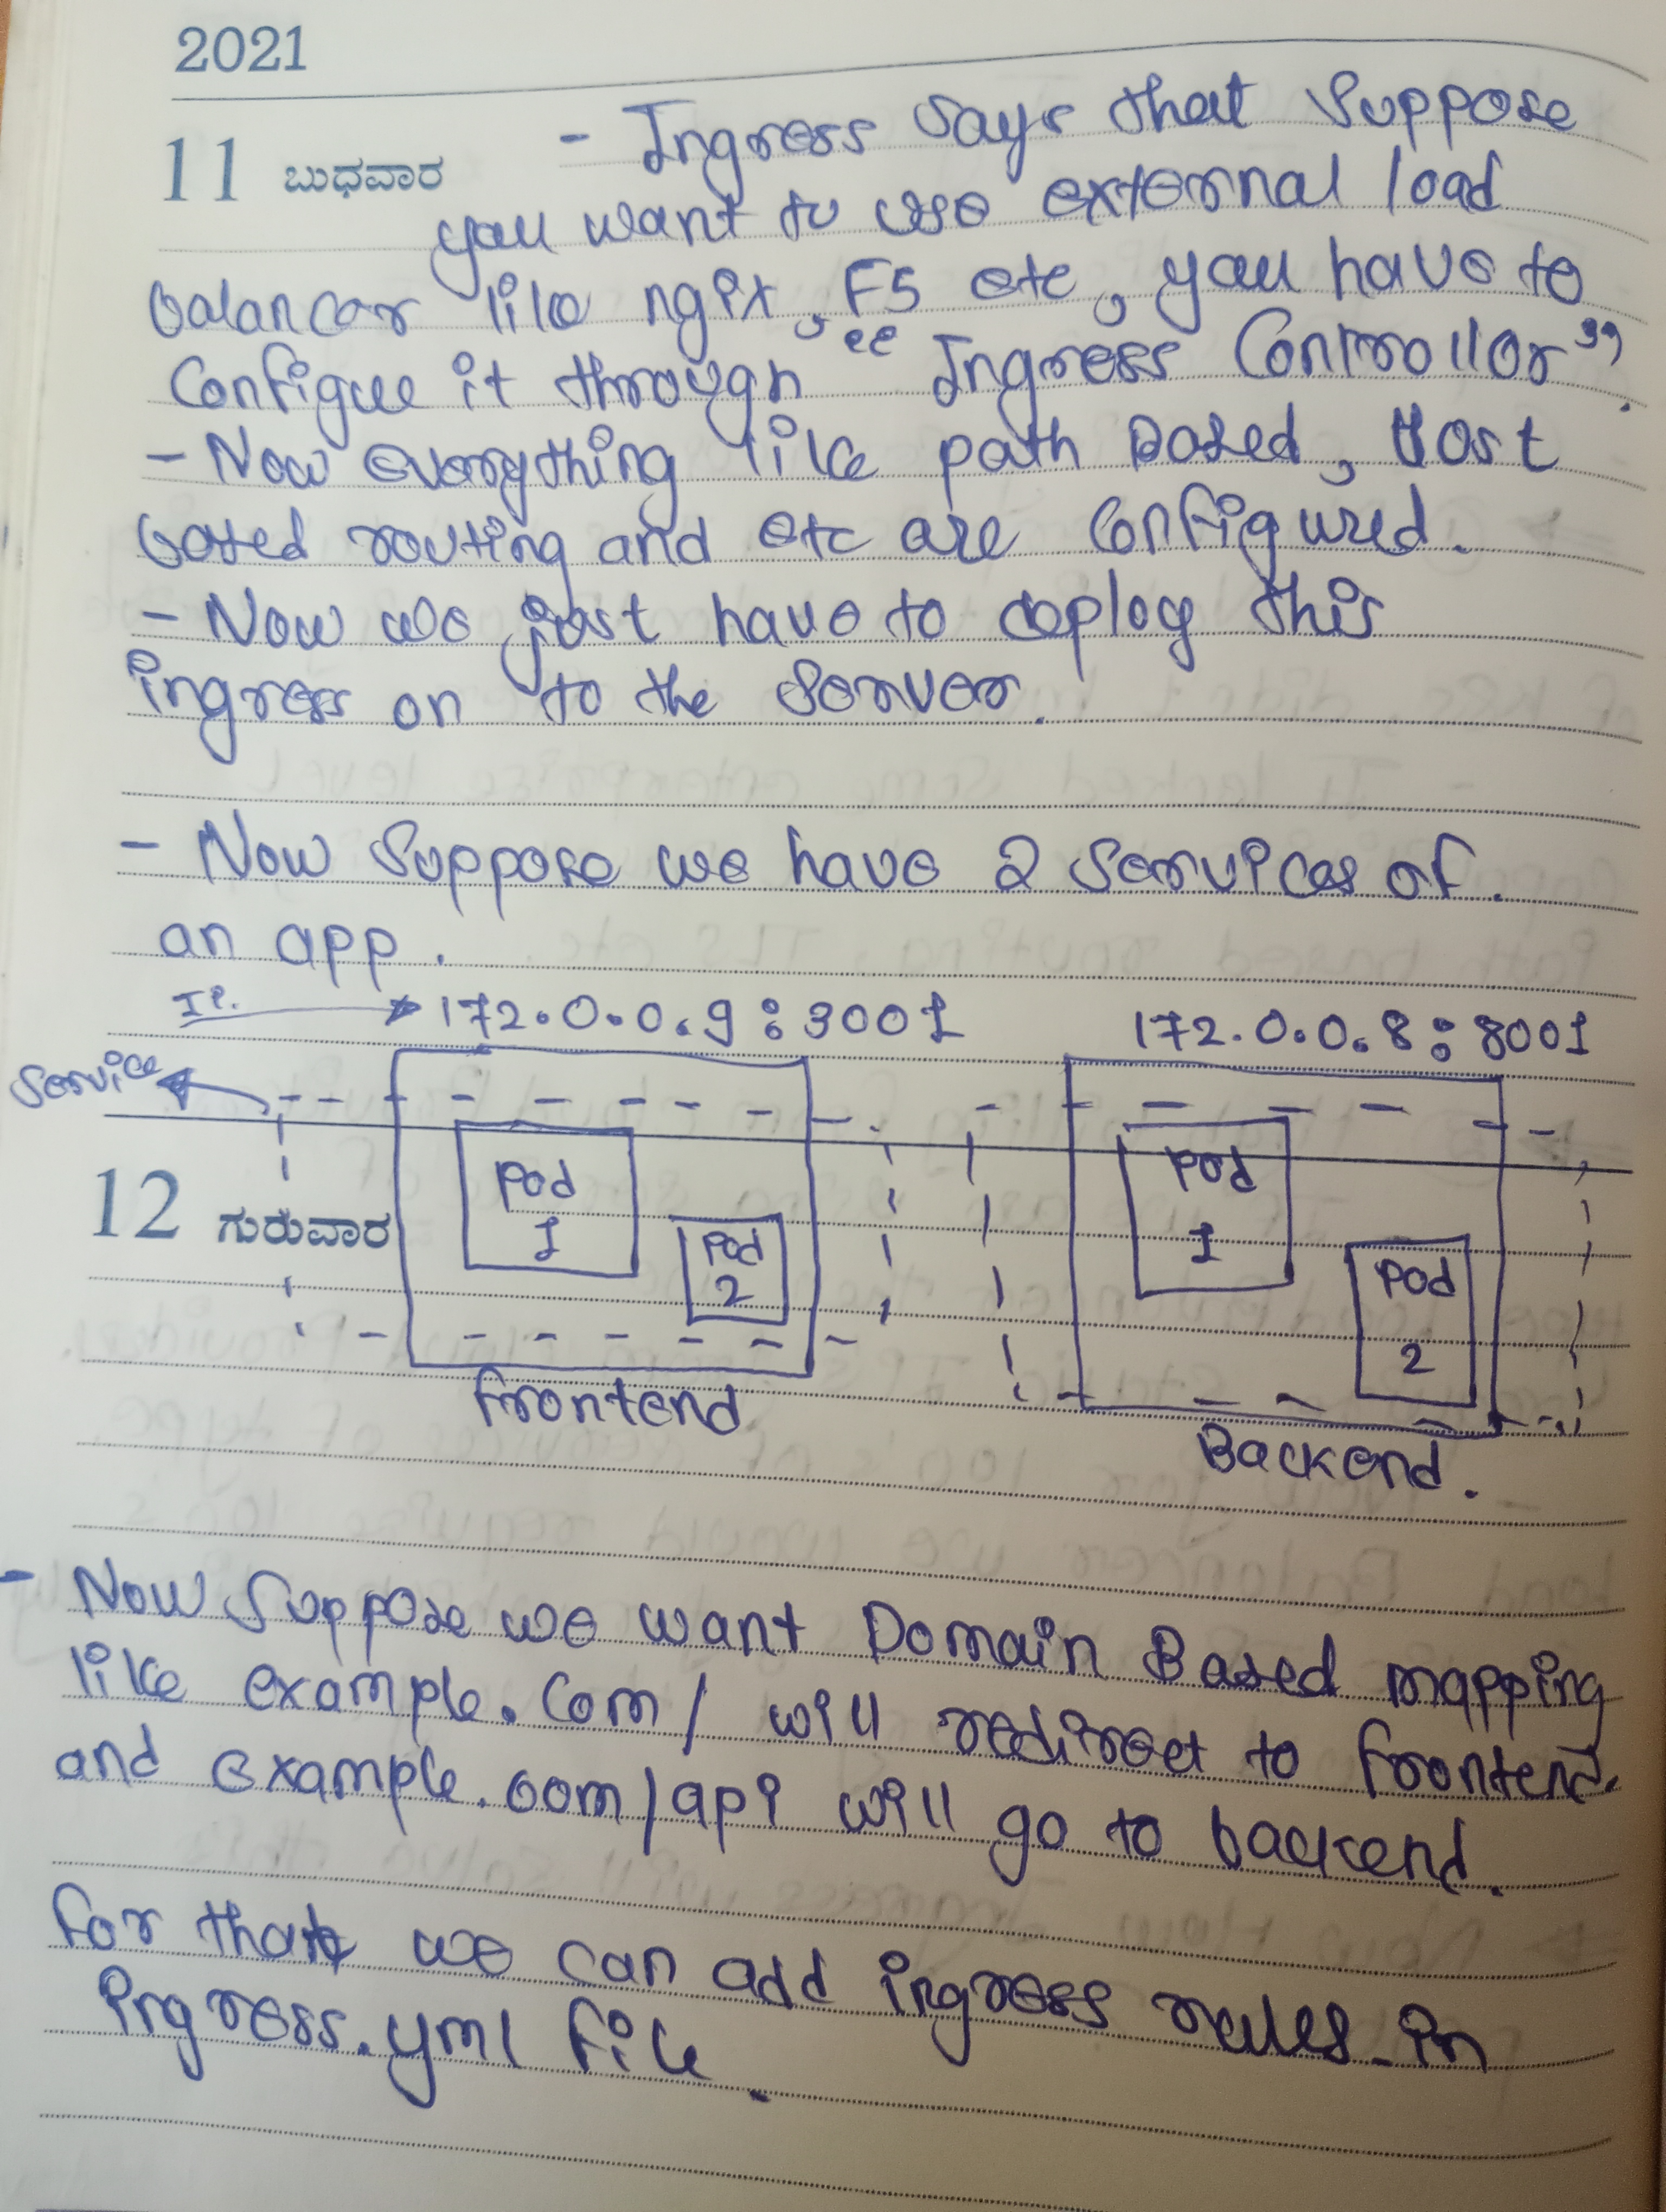 2021
11 ಬುಧವಾರ
- Ingress says that suppose
you want to use external load
balancer like ngix, F5 etc, you have to
Configue it through "Ingress Controller".
- Now everything like path based, Host
based routing and etc are configured.
- Now we just have to deploy this
ingress on to the server.
- Now suppose we have 2 services of
an app.
IP. → 172.0.0.9:3001 172.0.0.8:8001
Service
12 ಗುರುವಾರ
Pod
1
Pod
2
Pod
1
Pod
2
Frontend
Backend.
- Now suppose we want Domain Based mapping
like example.com/ will redirect to frontend.
and example.com/api will go to backend.
For that we can add ingress rules in
ingress.yml file.